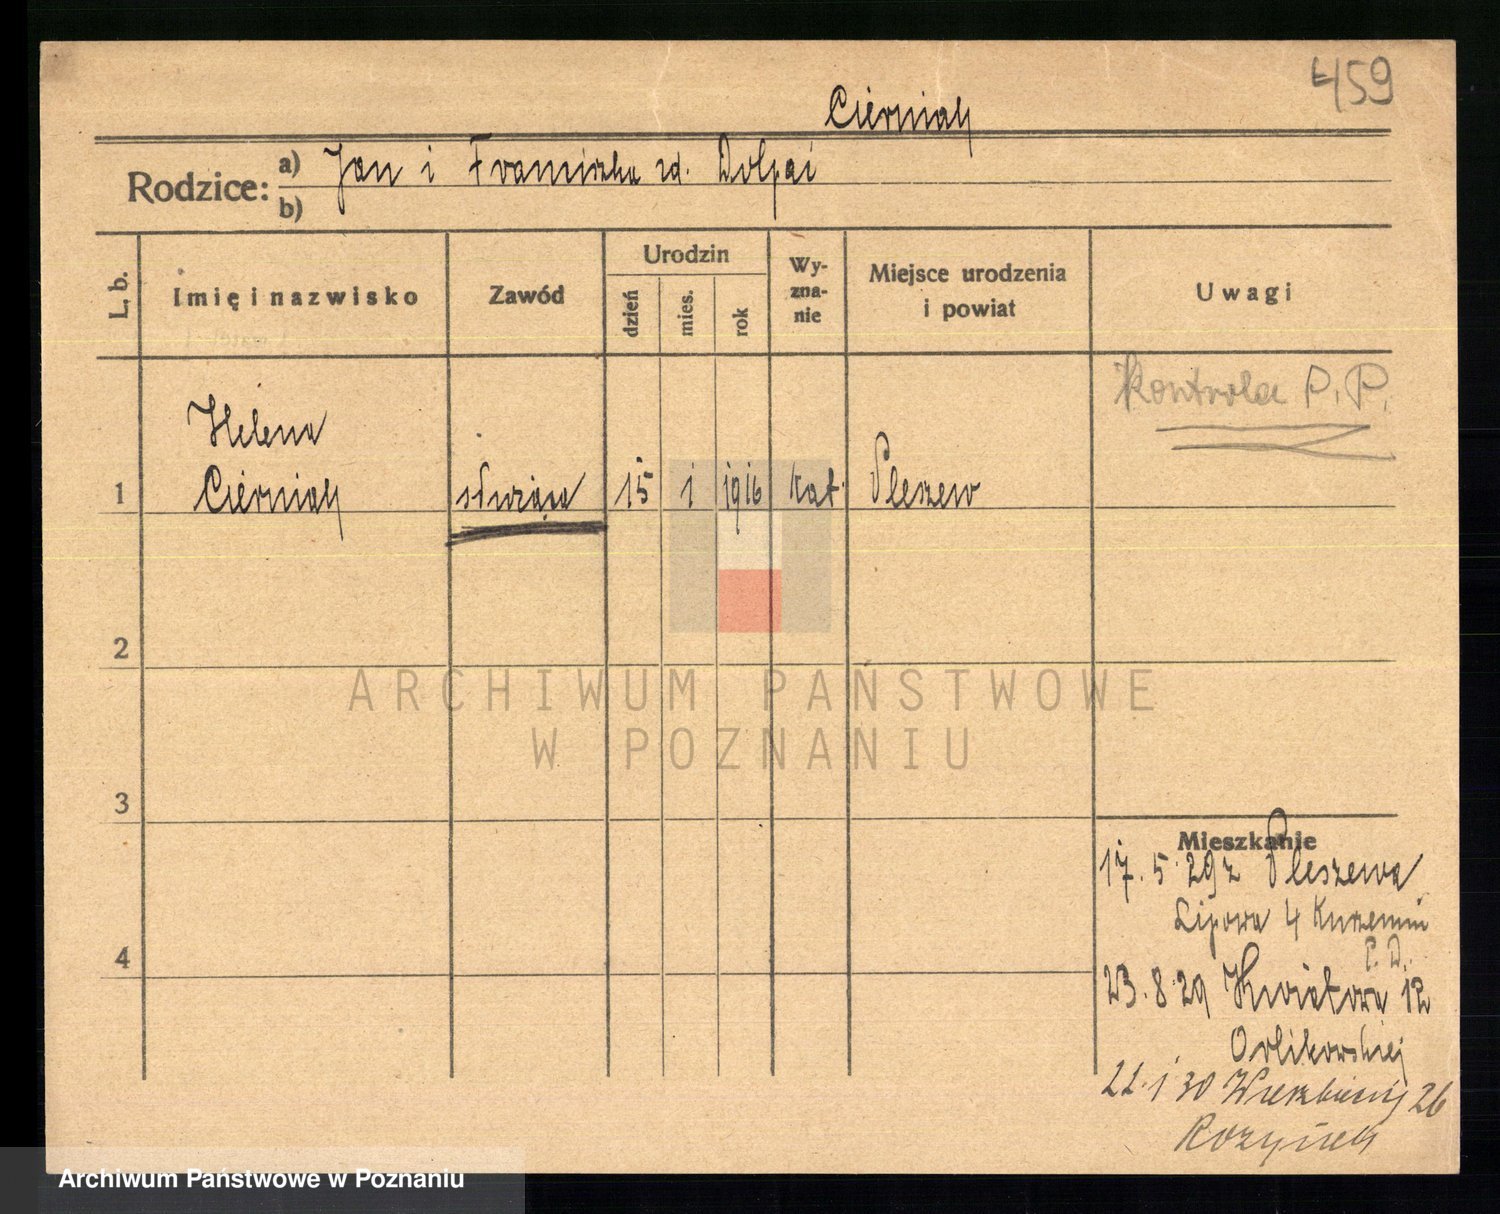 459
Cierniak
Rodzice: a) Jan i Franciszka zd. Dolpai
b)
L. b.
Imię i nazwisko
Zawód
Urodzin
dzień
mies.
rok
Wy-
zna-
nie
Miejsce urodzenia
i powiat
Uwagi
Kontrola P. P.
Helena
1 Cierniak służąca 15 1 1916 kat. Pleszew
2
3
4
ARCHIWUM PAŃSTWOWE
W POZNANIU
Mieszkanie
17. 5. 29 z Pleszewa
Lipowa 4
P. D.
23. 8. 29 Kwiatowa 12
Orlikowskiej
22. 1 30 Wierzbięcij 26
Archiwum Państwowe w Poznaniu